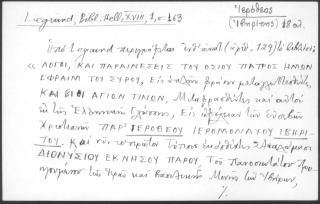 Legrand, Bibl. Hell. XVIII, 1, σ. 163
Ἱερόθεος
(Ἰβηρίτης) 18 αἰ.
Ὑπὸ Legrand περιγράφεται ὑπ' ἀριθ. 129) τὸ βιβλίον:
« ΛΟΓΟΙ, ΚΑΙ ΠΑΡΑΙΝΕΣΕΙΣ ΤΟΥ ΟΣΙΟΥ ΠΑΤΡΟΣ ΗΜΩΝ
ΕΦΡΑΙΜ ΤΟΥ ΣΥΡΟΥ, Εἰς ἁπλῆν φράσιν
ΚΑΙ ΒΙΟΙ ΑΓΙΩΝ ΤΙΝΩΝ, Μεταφρασθέντες καὶ αὐτοὶ
ἐκ τῆς Ἑλληνικῆς γλώσσης, Εἰς ὠφέλειαν τῶν εὐσεβῶν
Χριστιανῶν ΠΑΡ' ΙΕΡΟΘΕΟΥ ΙΕΡΟΜΟΝΑΧΟΥ ΙΒΗΡΙ-
ΤΟΥ. Καὶ νῦν πρῶτον Τύποις ἐκδοθέντες Ἀναλώμασι
ΔΙΟΝΥΣΙΟΥ ΕΚ ΝΗΣΟΥ ΠΑΡΟΥ, Τοῦ Πανοσιωτάτου Προ-
ηγουμένου τῆς Ἱερᾶς καὶ Βασιλικῆς Μονῆς τῶν Ἰβήρων,
./.